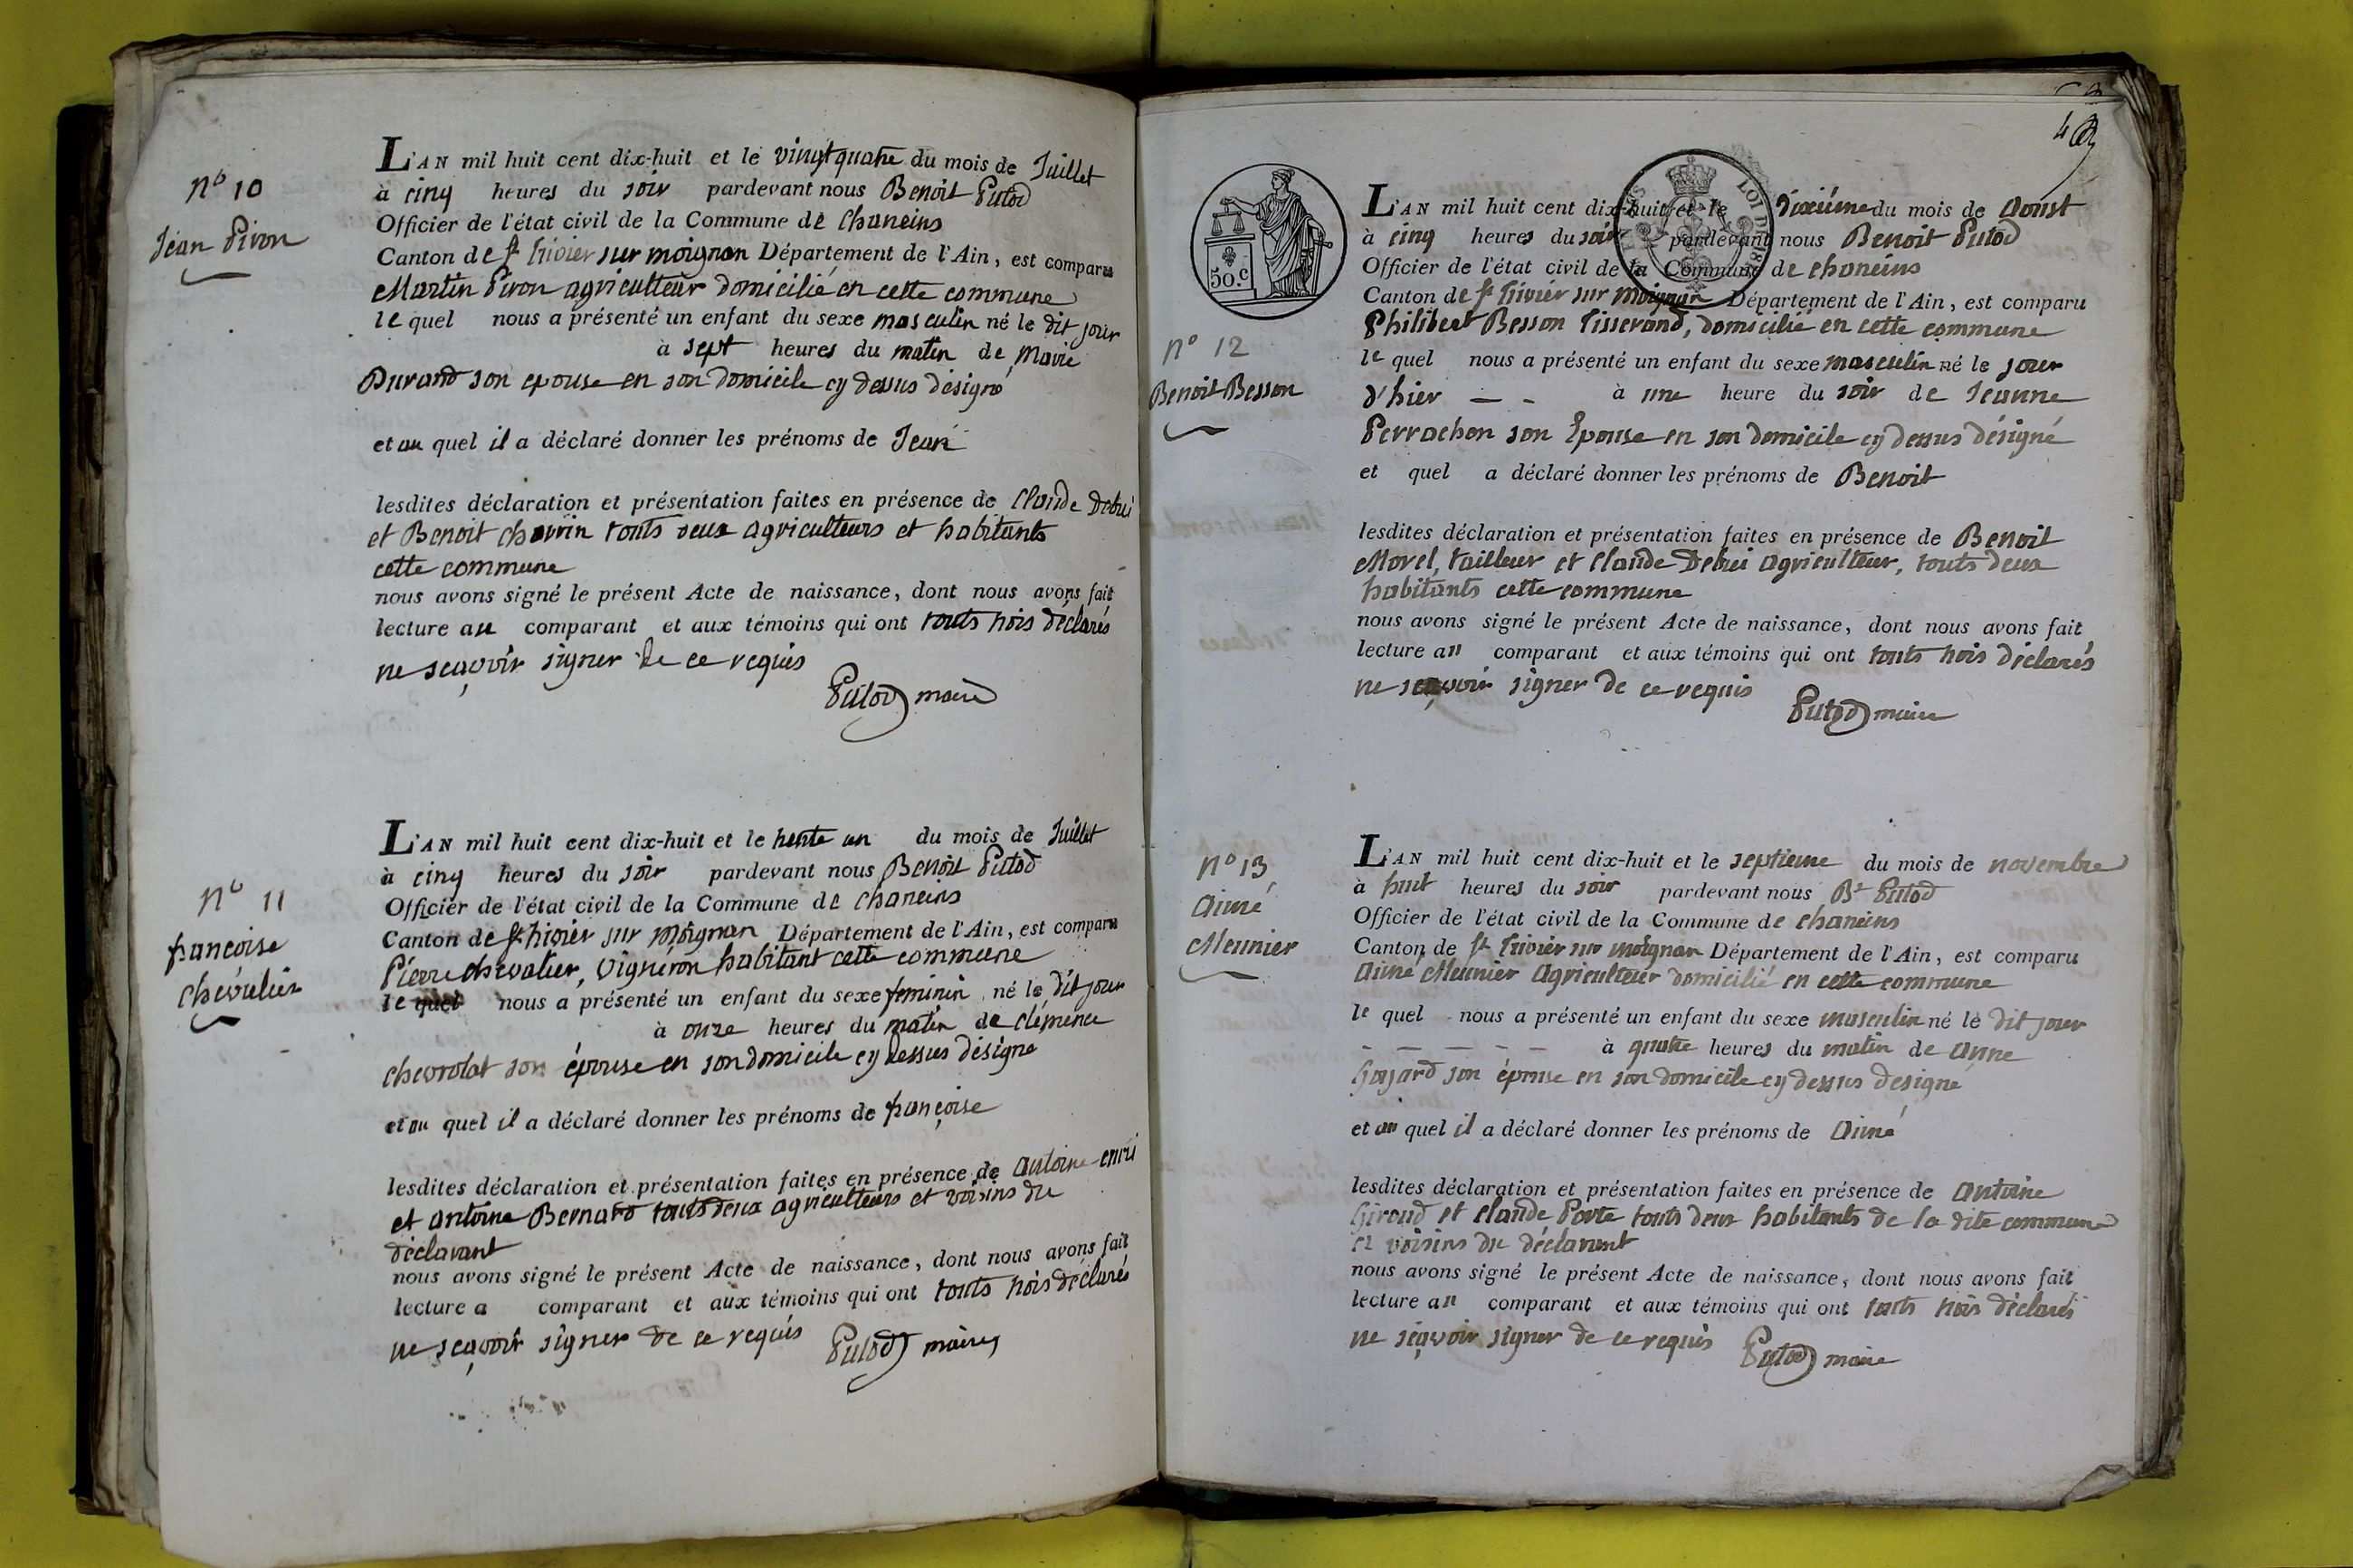 nº 10
Jean Piron
L'AN mil huit cent dix-huit et le vingt quatre du mois de Juillet
à cinq heures du soir pardevant nous Benoit Putod
Officier de l'état civil de la Commune de Chaneins
Canton de St Trivier sur moignan Département de l'Ain, est comparu
Martin Piron agriculteur domicilié en cette commune
lequel nous a présenté un enfant du sexe masculin né le dit jour
à sept heures du matin de Marie
Durand son epouse en son domicile cy dessus désigné
et au quel il a déclaré donner les prénoms de Jean
lesdites déclaration et présentation faites en présence de Claude Debui
et Benoit chervin touts deux agriculteurs et habitants
cette commune
nous avons signé le présent Acte de naissance, dont nous avons fait
lecture au comparant et aux témoins qui ont touts trois déclarés
ne sçavoir signer de ce requis
Putod maire
nº 11
françoise
chevalier
L'AN mil huit cent dix-huit et le trente un du mois de Juillet
à cinq heures du soir pardevant nous Benoit Putod
Officier de l'état civil de la Commune de Chaneins
Canton de St trivier sur moignan Département de l'Ain, est comparu
Pierre chevalier, vigneron habitant cette commune
le quel nous a présenté un enfant du sexe feminin né le dit jour
à onze heures du matin de clémence
chevrolat son épouse en son domicile cy dessus désigné
et au quel il a déclaré donner les prénoms de françoise
lesdites déclaration et présentation faites en présence de antoine
et antoine Bernard touts deux agriculteurs et voisins du
déclarant
nous avons signé le présent Acte de naissance, dont nous avons fait
lecture a comparant et aux témoins qui ont touts trois déclarés
ne sçavoir signer de ce requis
Putod maire
50.c
LOI DE 18
nº 12
Benoit Besson
L'AN mil huit cent dix-huit et le dixiéme du mois de aoust
à cinq heures du soir pardevant nous Benoit Putod
Officier de l'état civil de la Commune de chaneins
Canton de St Trivier sur Moignan Département de l'Ain, est comparu
Philibert Besson Tisserand, domicilié en cette commune
le quel nous a présenté un enfant du sexe masculin né le jour
d'hier — - à une heure du soir de Jeanne
Perrachon son Epouse en son domicile cy dessus désigné
et quel a déclaré donner les prénoms de Benoit
lesdites déclaration et présentation faites en présence de Benoit
Morel, tailleur et Claude Debui agriculteur, touts deux
habitants cette commune
nous avons signé le présent Acte de naissance, dont nous avons fait
lecture au comparant et aux témoins qui ont touts trois déclarés
ne sçavoir signer de ce requis
Putod maire
nº 13
Aimé
Meunier
L'AN mil huit cent dix-huit et le septieme du mois de novembre
à huit heures du soir pardevant nous Bt Putod
Officier de l'état civil de la Commune de chaneins
Canton de St Trivier sur moignan Département de l'Ain, est comparu
Aimé Meunier Agriculteur domicilié en cette commune
le quel nous a présenté un enfant du sexe masculin né le dit jour
- — — - - à quatre heures du matin de anne
Goyard son épouse en son domicile cy dessus designé
et au quel il a déclaré donner les prénoms de Aimé
lesdites déclaration et présentation faites en présence de antoine
Giroud et claude Porte touts deux habitants de la dite commune
et voisins du déclarant
nous avons signé le présent Acte de naissance, dont nous avons fait
lecture au comparant et aux témoins qui ont touts trois déclarés
ne sçavoir signer de ce requis
Putod maire